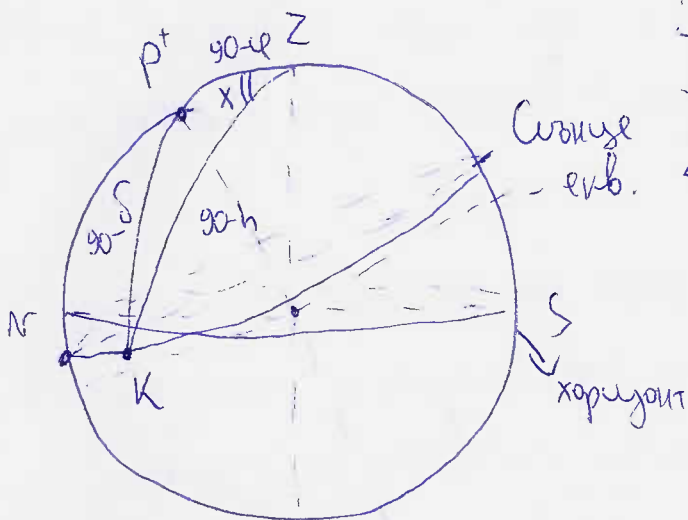 90-φ
Z
P⁺
x
Слънце
екв.
90-δ
90-h
N
S
K
хоризонт